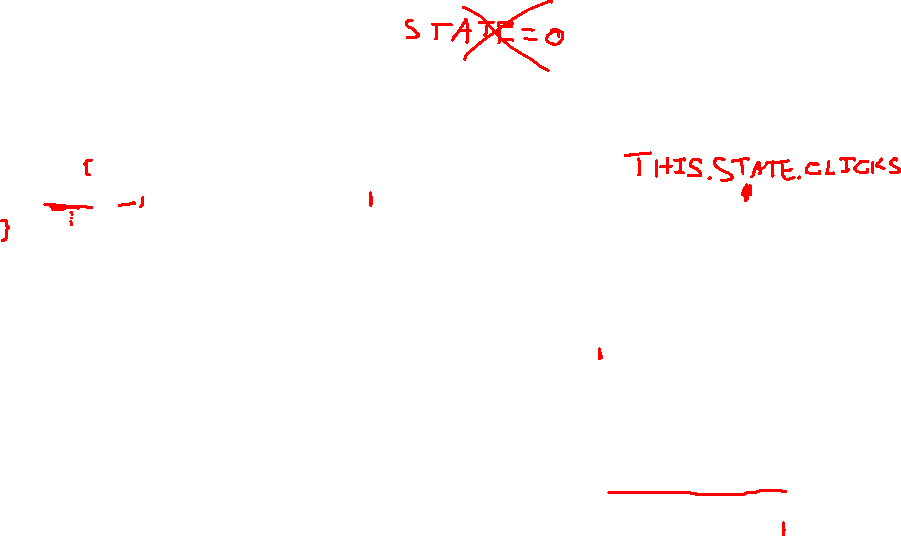 STATE=0
THIS.STATE.CLICKS
}